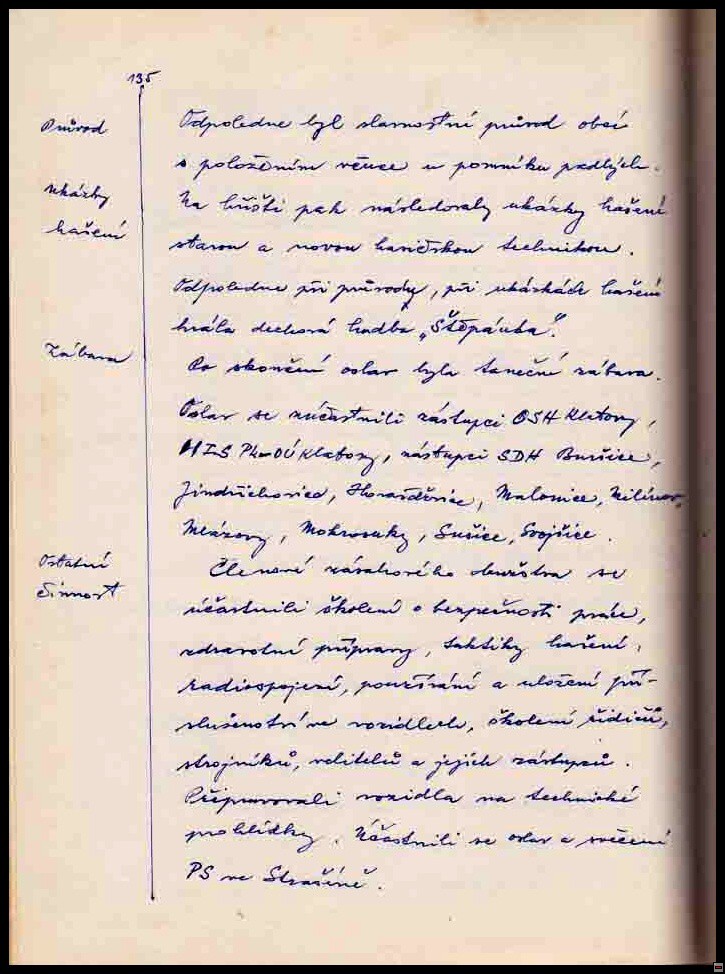 135
Průvod
Odpoledne byl slavnostní průvod obcí
s položením věnce u pomníku padlých.
ukázky
Na hřišti pak následovaly ukázky hašení
hašení
starou a novou hasičskou technikou.
Odpoledne při průvodu, při ukázkách hašení
hrála dechová hudba „Štěpánka".
Zábava
Po skončení oslav byla taneční zábava.
Oslav se zúčastnili zástupci OSH Klatovy,
OÚ Klatovy, zástupci SDH Buršice,
Jindřichovice, Horažďovice, Malonice,
Mlázovy, Mokrosuky, Sušice, Svojšice.
Ostatní
Členové zásahového družstva se
činnost
účastnili školení o bezpečnosti práce,
zdravotní přípravy, taktiky hašení,
radiospojení, používání a uložení pří-
slušenství ve vozidlech, školení řidičů,
strojníků, velitelů a jejich zástupců.
Připravovali vozidla na technické
prohlídky. Účastnili se oslav a svěcení
PS ve Strašíně.